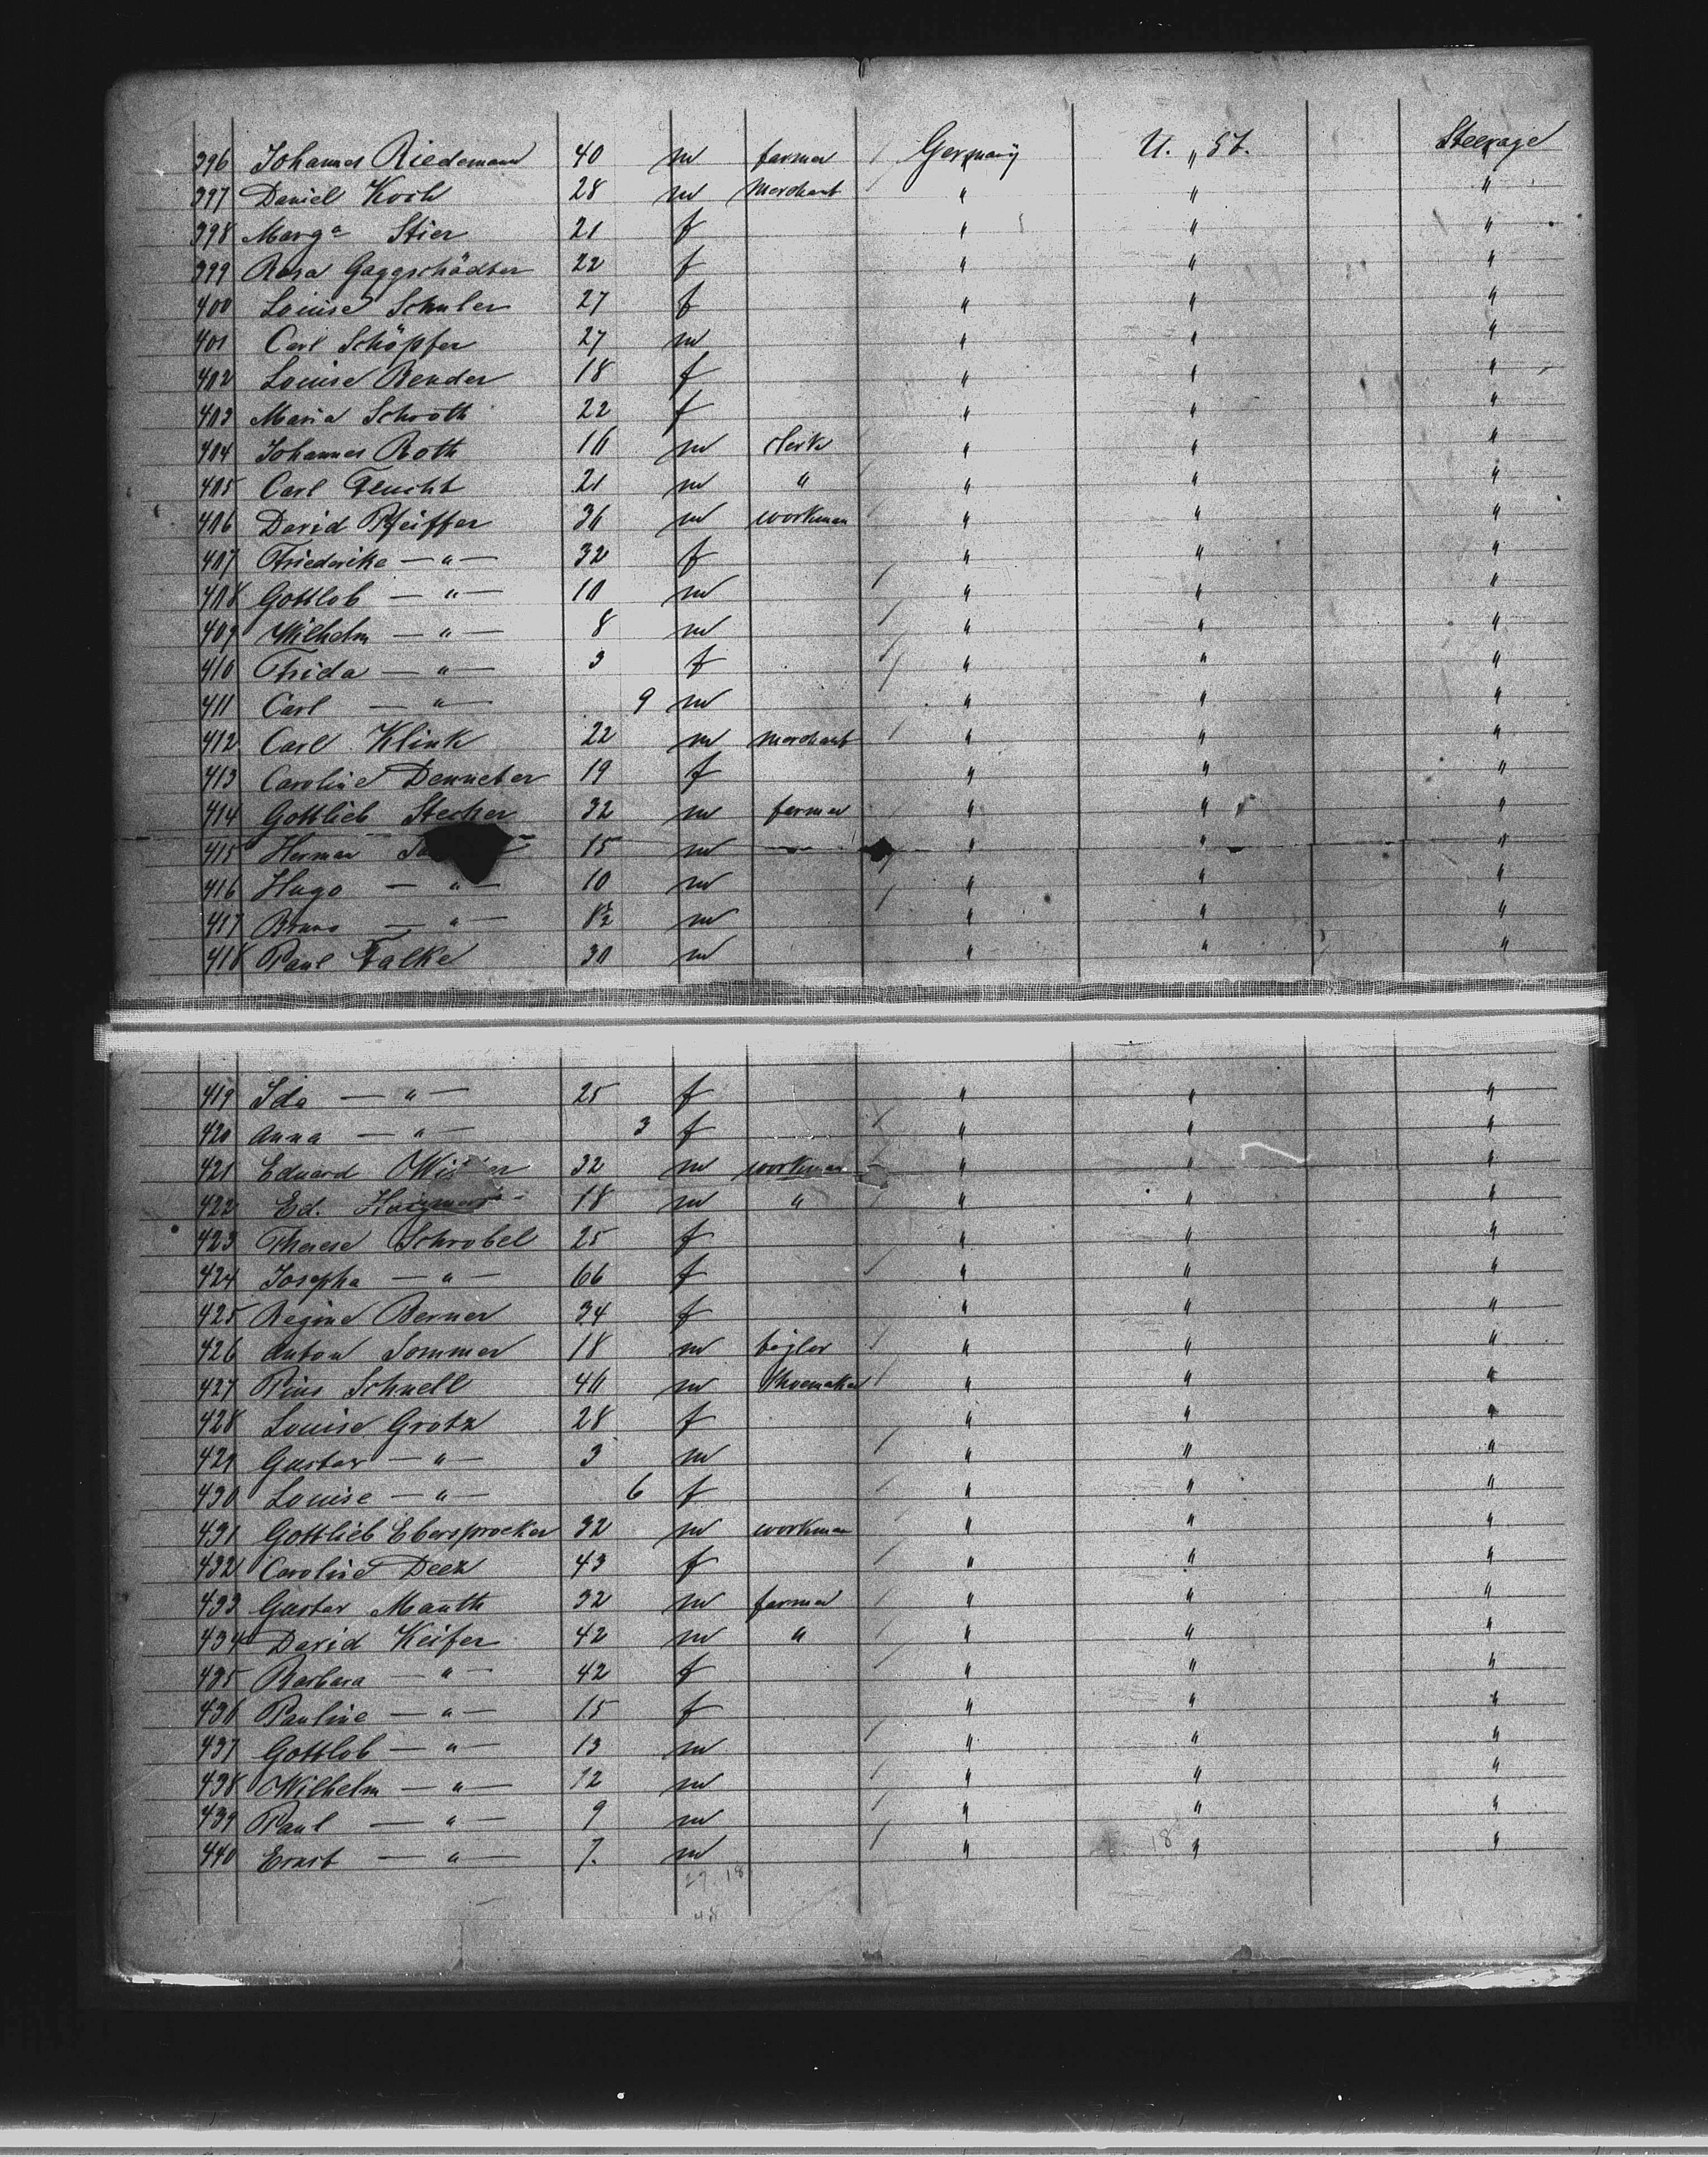 396 Johannes Riedemann 40 m farmer Germany U. St. Steerage
397 Daniel Koch 28 m merchant " " "
398 Marga Stier 21 f " " "
399 Rosa Gaggschädter 22 f " " "
400 Louise Schuler 27 f " " "
401 Carl Schöpfer 27 m " " "
402 Louise Bender 18 f " " "
403 Maria Schroth 22 f " " "
404 Johannes Roth 16 m clerk " " "
405 Carl Feucht 21 m " " " "
406 David Pfeiffer 36 m workman " " "
407 Friederike — " — 32 f " " "
408 Gottlob — " — 10 m " " "
409 Wilhelm — " — 8 m " " "
410 Frida — " — 3 f " " "
411 Carl — " — 9 m " " "
412 Carl Klink 22 m merchant " " "
413 Caroline Denneter 19 f " " "
414 Gottlieb Stecher 32 m farmer " " "
415 Herman 15 m " " "
416 Hugo — " — 10 m " " "
417 Bruno — " — m " " "
418 Paul Falke 30 m " " "
419 Ida — " — 25 f " " "
420 Anna — " — 3 f " " "
421 Eduard 32 m workman " " "
422 Ed. 18 m " " " "
423 Therese Schrobel 25 f " " "
424 Josepha — " — 66 f " " "
425 Regine Berner 34 f " " "
426 Anton Sommer 18 m taylor " " "
427 Pius Schnell 46 m Shoemaker " " "
428 Louise Grotz 28 f " " "
429 Gustav — " — 3 m " " "
430 Louise — " — 6 f " " "
431 Gottlieb Ebersprocker 32 m workman " " "
432 Caroline Deez 43 f " " "
433 Gustav Mauth 32 m farmer " " "
434 David Keifer 42 m " " " "
435 Barbara — " — 42 f " " "
436 Pauline — " — 15 f " " "
437 Gottlob — " — 13 m " " "
438 Wilhelm — " — 12 m " " "
439 Paul — " — 9 m " " "
440 Ernst — " — 7. m " " "
18